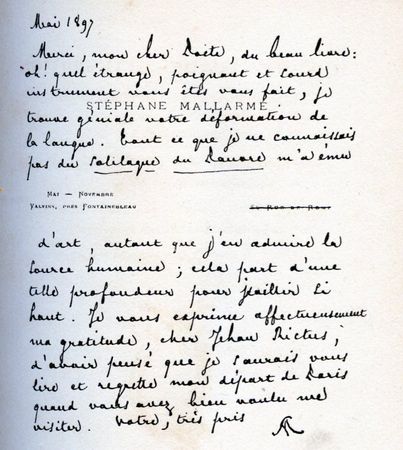 Mai 1897
Merci, mon cher Poète, du beau livre:
oh! quel étrange, poignant et sourd
instrument vous êtes vous fait, je
STÉPHANE MALLARMÉ
trouve géniale votre déformation de
la langue. Tout ce que je ne connaissais
pas du Soliloque du Pauvre m'a ému
MAI — NOVEMBRE
VALVINS, PRÈS FONTAINEBLEAU
d'art, autant que j'en admire la
source humaine; cela part d'une
telle profondeur pour jaillir si
haut. Je vous exprime affectueusement
ma gratitude, cher Jehan Rictus,
d'avoir pensé que je saurais vous
lire et regrette mon départ de Paris
quand vous avez bien voulu me
visiter. Votre, très pris